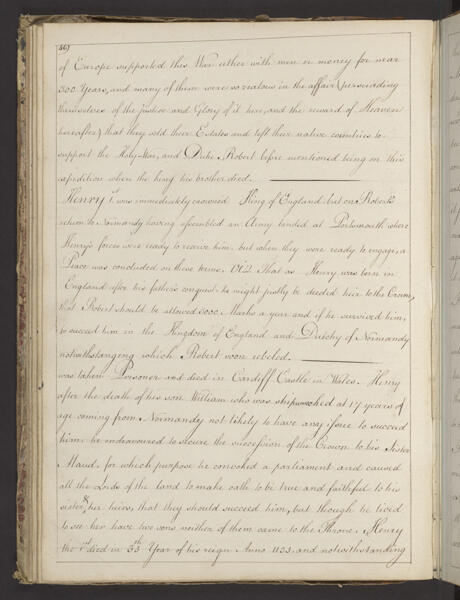 56)
of Europe supported this War either with men or money for near
300 Years, and many of them were so zealous in the affair (perswading
themselves of the justice and Glory of it here, and the reward of Heaven
hereafter) that they sold their Estates and left their native countries to
support the Holy-War, and Duke Robert before mentioned being on this
expedition when the king his brother died.
Henry 1st was immediately crowned King of England but on Robert's
return to Normandy having assembled an Army landed at Portsmouth where
Henry's forces were ready to receive him, but when they were ready to engage, a
Peace was concluded on these terms. Viz. That as Henry was born in
England after his father's conquest he might justly be deeded heir to the Crown,
that Robert should be allowed 3000 Marks a year and if he survived him,
to succeed him in the Kingdom of England and Dutchy of Normandy
notwithstanging which Robert soon rebeled.
was taken Prisoner and died in Cardiff Castle in Wales. Henry
after the death of his son William who was shipwrecked at 17 years of
age coming from Normandy not likely to have any issue to succeed
him he endeavoured to secure the succession of the Crown to his Sister
Maud, for which purpose he convoked a parliament and caused
all the Lords of the land to make oath to be true and faithful to his
sister & her heirs, that they should succeed him, but though he lived
to see her have two sons neither of them came to the Throne. Henry
the 1st died in 35th Year of his reign Anno 1133 and notwithstanding